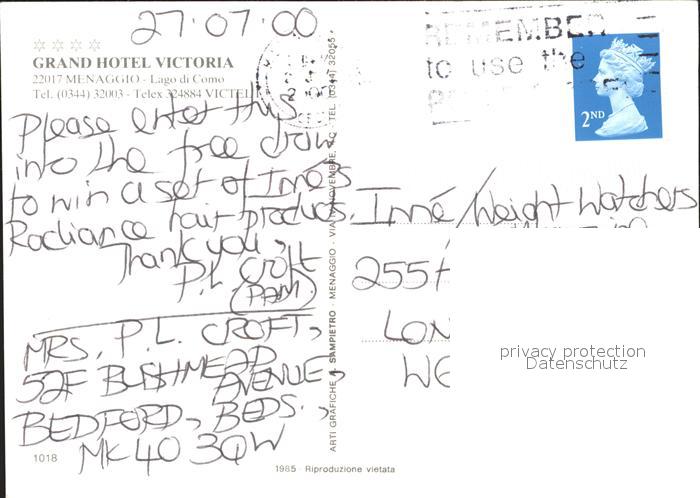 27.07.00
GRAND HOTEL VICTORIA
22017 MENAGGIO - Lago di Como
Tel. (0344) 32003 - Telex 324884 VICTEL
Please enter this
into the free draw
to win a set of Inné's
Radiance hair products.
Thank you,
P.L. Croft
(PAM)
MRS. P.L. CROFT,
52F BUSHMEAD
AVENUE,
BEDFORD, BEDS.,
MK40 3QW
1018
ARTI GRAFICHE SAMPIETRO - MENAGGIO - VIA IV NOVEMBRE, - TEL. (0344) 32055
REMEMBER
to use the
2ND
Inné/Weight Watchers
255
LON
privacy protection
Datenschutz
1985 - Riproduzione vietata